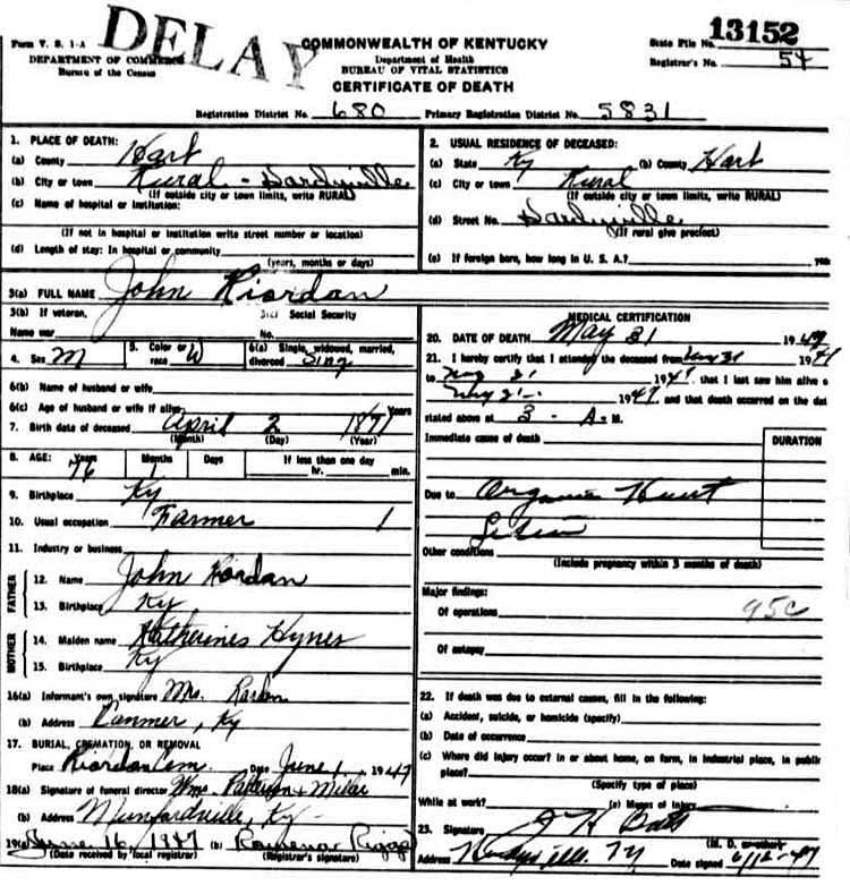 DELAY
Form V. S. 1-A
DEPARTMENT OF COMMERCE
Bureau of the Census
COMMONWEALTH OF KENTUCKY
Department of Health
BUREAU OF VITAL STATISTICS
CERTIFICATE OF DEATH
State File No. 13152
Registrar's No. 54
Registration District No. 680 Primary Registration District No. 5831
1. PLACE OF DEATH:
(a) County Hart
(b) City or town Rural - Hardyville
(If outside city or town limits, write RURAL)
(c) Name of hospital or institution:
(If not in hospital or institution write street number or location)
(d) Length of stay: In hospital or community
(years, months or days)
2. USUAL RESIDENCE OF DECEASED:
(a) State Ky (b) County Hart
(c) City or town Rural
(If outside city or town limits, write RURAL)
(d) Street No. Hardyville
(If rural give precinct)
(e) If foreign born, how long in U. S. A.?
3(a) FULL NAME John Riordan
3(b) If veteran, 3(c) Social Security
Name war No.
4. Sex M 5. Color or race W 6(a) Single, widowed, married, divorced Sing
6(b) Name of husband or wife
6(c) Age of husband or wife if alive Years
7. Birth date of deceased April 2 1871
(Month) (Day) (Year)
8. AGE: Years 76 Months 1 Days If less than one day
hr. min.
9. Birthplace Ky
10. Usual occupation Farmer 1
11. Industry or business
FATHER
12. Name John Riordan
13. Birthplace Ky
MOTHER
14. Maiden name Katherines Hynes
15. Birthplace Ky
16(a) Informant's own signature Mrs.
(b) Address Canmer, Ky
17. BURIAL, CREMATION, OR REMOVAL
Place Riordan Cem. Date June 1, 1947
18(a) Signature of funeral director Wms. Patterson & Miller
(b) Address Munfordville, Ky.
19(a) June 16, 1947 (b) Riggs
(Date received by local registrar) (Registrar's signature)
MEDICAL CERTIFICATION
20. DATE OF DEATH May 31 1947
21. I hereby certify that I attended the deceased from May 31 1947
to May 31 1947 that I last saw him alive o
May 31 - 1947, and that death occurred on the dat
stated above at 3 - A. M.
Immediate cause of death DURATION
Due to Organic Heart
Other conditions
(Include pregnancy within 3 months of death)
Major findings:
Of operations 95c
Of autopsy
22. If death was due to external causes, fill in the following:
(a) Accident, suicide, or homicide (specify)
(b) Date of occurrence
(c) Where did injury occur? In or about home, on farm, in industrial place, in public
place?
(Specify type of place)
While at work? (e) Means of Injury
23. Signature
(M. D. or other)
Address Hardyville, Ky Date signed 6/12-47